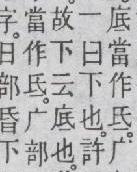 底當作氐。广
一曰下也。許
故下云底也。
當作氐。广部
字。日部昏下